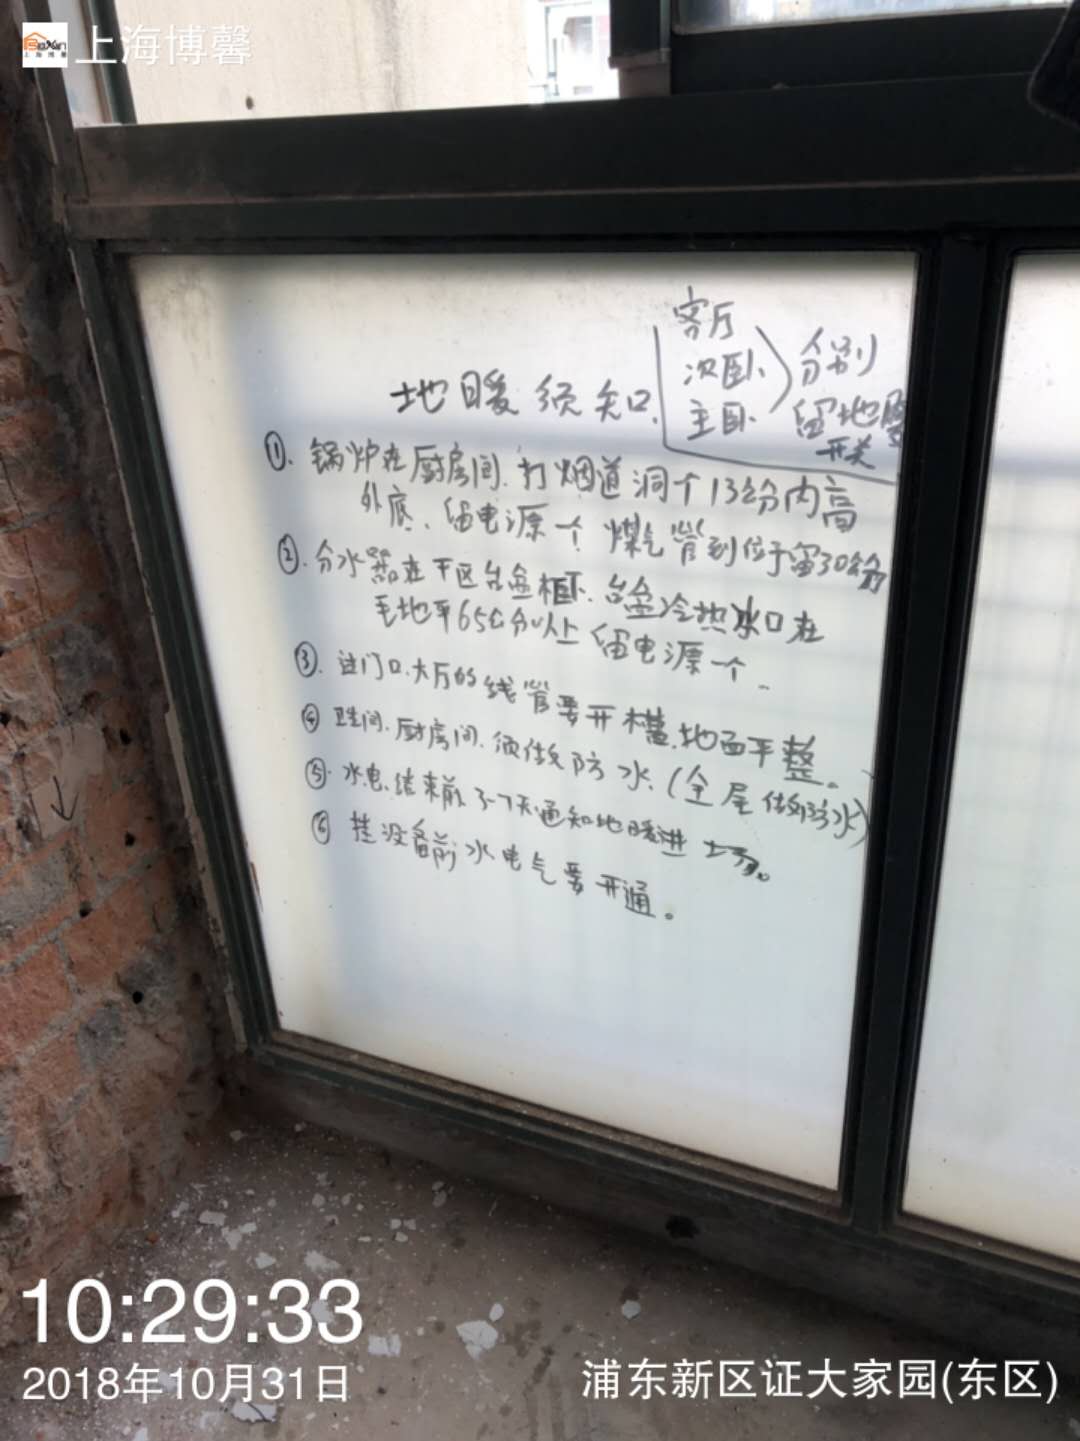 BoXin
上海博馨
上海博馨
客厅
次卧、
主卧
分别
留地暖
开关
地暖须知.
①. 锅炉在厨房间.打烟道洞个13公分内高
外底、留电源一个 煤气管到位于留30公分
②. 分水器在干区台盆柜下、台盆冷热水口在
毛地平65公分以上 留电源一个.
③. 进门口.大厅的线管要开槽.地面平整。
④ 卫生间.厨房间.须做防水.(全屋做防水)
⑤. 水电结束前3-7天通知地暖进场。
⑥ 挂设备前水电气要开通。
10:29:33
2018年10月31日
浦东新区证大家园(东区)